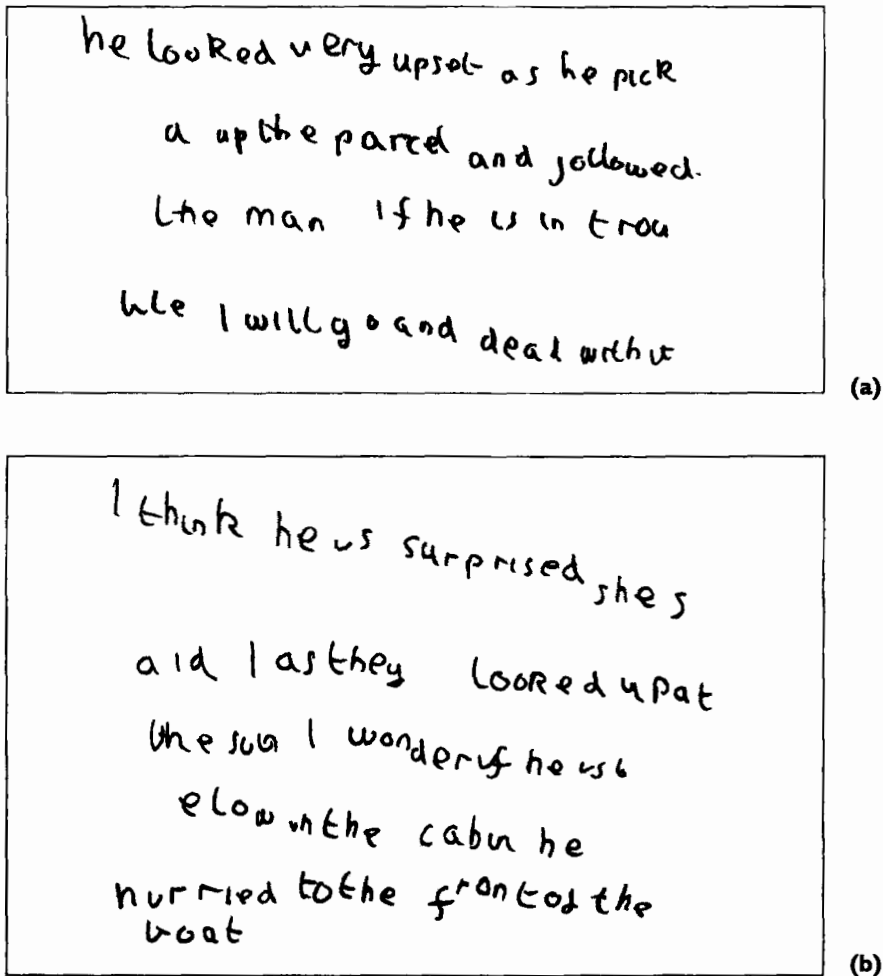 he looked very upset as he pick
a up the parcel and followed.
the man If he is in trou
ble I will go and deal with it
(a)
I think he is surprised she s
aid I as they looked up at
the sun I wonder if he is b
elow in the cabin he
hurried to the front of the
boat
(b)